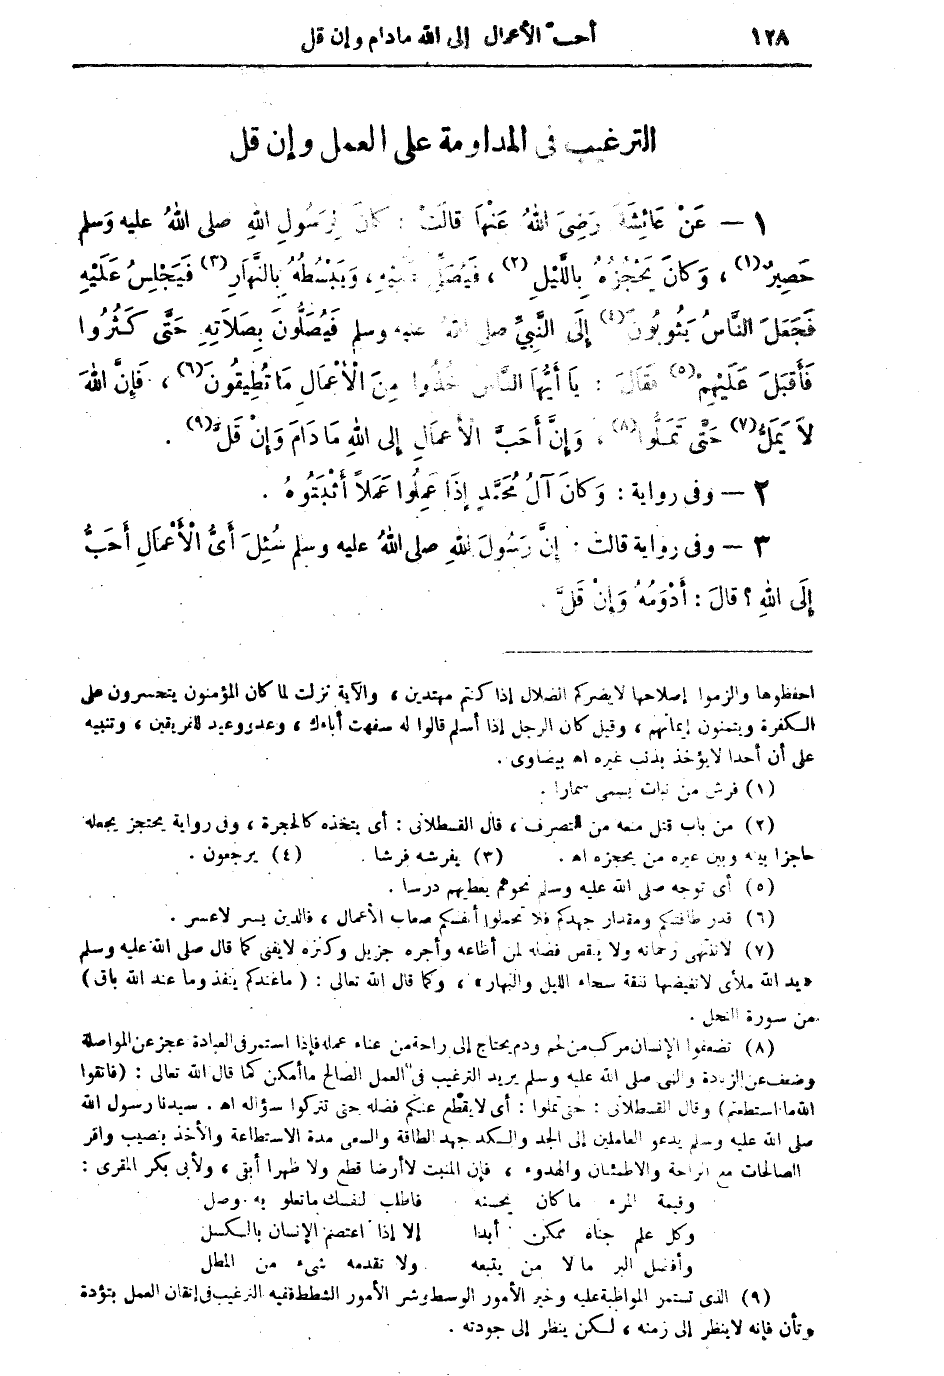 ١٢٨ أحب الأعمال إلى الله مادام وإن قل
الترغيب فى المداومة على العمل وإن قل
١ — عَنْ عَائِشَةَ رَضِىَ اللهُ عَنْهَا قَالَتْ : كَانَ لِرَسُولِ اللهِ صلى اللهُ عليه وَسلم
حَصِيرٌ(١) ، وَكَانَ يَحْجُزُهُ بِاللَّيْلِ(٢) ، فَيُصَلِّى عَلَيْهِ ، وَيَبْسُطُهُ بِالنَّهَارِ(٣) فَيَجْلِسُ عَلَيْهِ
فَجَعَلَ النَّاسُ يَثُوبُونَ(٤) إِلَى النَّبِيِّ صلى اللهُ عليه وسلم فَيُصَلُّونَ بِصَلَاتِهِ حَتَّى كَثُرُوا
فَأَقْبَلَ عَلَيْهِمْ(٥) فَقَالَ : يَا أَيُّهَا النَّاسُ خُذُوا مِنَ الْأَعْمَالِ مَا تُطِيقُونَ(٦) ، فَإِنَّ اللهَ
لاَ يَمَلُّ(٧) حَتَّى تَمَلُّوا(٨) ، وَإِنَّ أَحَبَّ الْأَعمَالِ إلى اللهِ مَا دَامَ وَإِنْ قَلَّ(٩) .
٢ — وفى رواية : وَكَانَ آلُ مُحَمَّدٍ إِذَا عَمِلُوا عَمَلاً أَثْبَتُوهُ .
٣ — وفى رواية قالت : إنَّ رَسُولَ اللهِ صلى اللهُ عليه وسلم سُئِلَ أَىُّ الْأَعْمَالِ أَحَبُّ
إِلَى اللهِ ؟ قالَ : أَدْوَمُهُ وَإِنْ قَلَّ .
احفظوها والزموا إصلاحها لايضركم الضلال إذا كنتم مهتدين ، والآية نزلت لما كان المؤمنون يتحسرون على
الكفرة ويتمنون إيمانهم ، وقيل كان الرجل إذا أسلم قالوا له سفهت أباءك ، وعد ووعيد للفريقين ، وتنبيه
على أن أحدا لايؤخذ بذنب غيره اه بيضاوى .
(١) فرش من نبات يسمى سمارا .
(٢) من باب قتل منعه من التصرف ، قال القسطلانى : أى يتخذه كالحجرة ، وفى رواية يحتجز يجعله
حاجزا بينه وبين غيره من يحجزه اه . (٣) يفرشه فرشا . (٤) يرجعون .
(٥) أى توجه صلى الله عليه وسلم نحوهم يعطيهم درسا .
(٦) قدر طاقتكم ومقدار جهدكم فلا تحملوا أنفسكم صعاب الأعمال ، فالدين يسر لاعسر .
(٧) لاتنتهى رحماته ولا ينقص فضله لمن أطاعه وأجره جزيل وكنزه لايفنى كما قال صلى الله عليه وسلم
«يد الله ملأى لاتغيضها نفقة سحاء الليل والنهار» ، وكما قال الله تعالى : (ماعندكم ينفذ وما عند الله باق)
من سورة النحل .
(٨) تضعفوا الإنسان مركب من لحم ودم يحتاج إلى راحة من عناء عمله فإذا استمر فى العبادة عجز عن المواصلة
وضعف عن الزيادة والنبى صلى الله عليه وسلم يريد الترغيب فى العمل الصالح ماأمكن كما قال الله تعالى : (فاتقوا
الله مااستطعتم) وقال القسطلانى : حتى تملوا : أى لايقطع عنكم فضله حتى تتركوا سؤاله اه . سيدنا رسول الله
صلى الله عليه وسلم يدعو العاملين إلى الجد والكد جهد الطاقة والسعى مدة الاستطاعة والأخذ بنصيب وافر
الصالحات مع الراحة والاطمئنان والهدوء ، فإن المنبت لاأرضا قطع ولا ظهرا أبقى ، ولأبى بكر المقرى :
وقيمة المرء ماكان يحسنه فاطلب لنفسك ماتعلو به وصل
وكل علم جناه ممكن أبدا إلا إذا اعتصم الإنسان بالكسل
وأفضل البر مالا من يتبعه ولا تقدمه شىء من المطل
(٩) الذى تستمر المواظبة عليه وخير الأمور الوسط وشر الأمور الشطط ففيه الترغيب فى إتقان العمل بتؤدة
وتأن فإنه لاينظر إلى زمنه ، لكن ينظر إلى جودته .